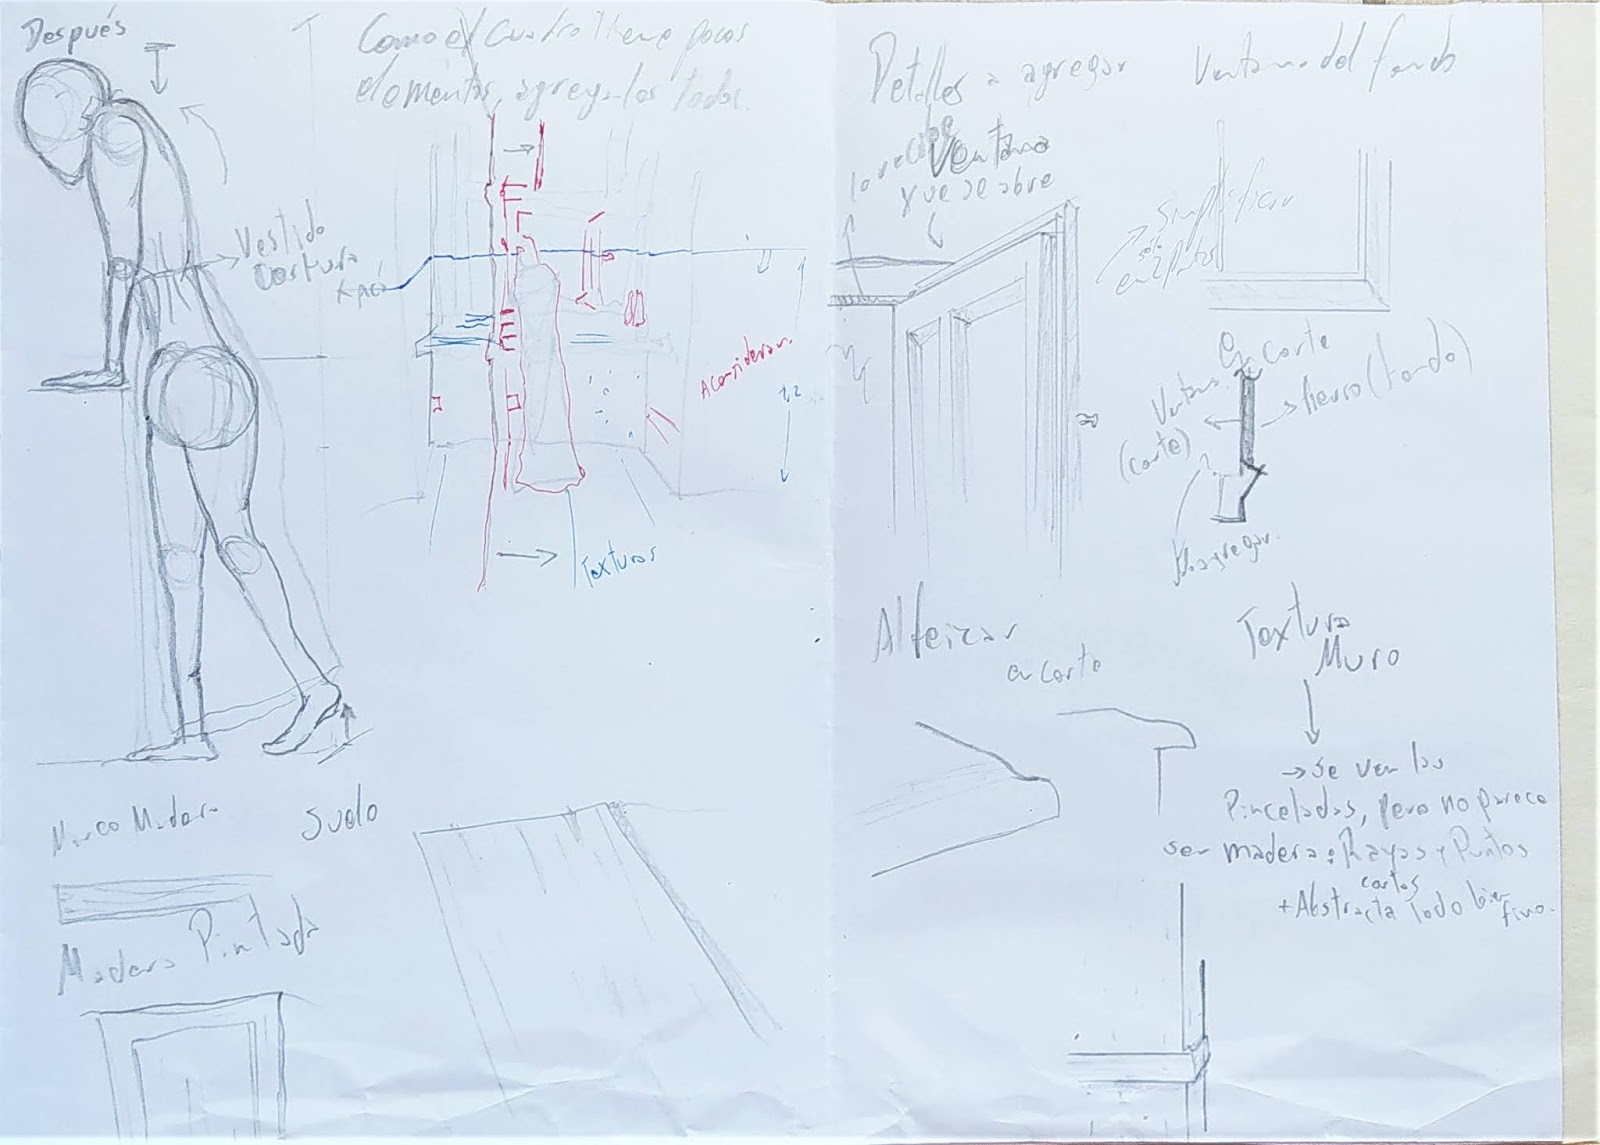 Después
Como el cuadro tiene pocos
elementos, agregarlos todos.
Vestido
cortura
A considerar.
1,2
Texturas
Marco Madera
Suelo
Madera Pintada
Detalles a agregar
Ventana
que se abre
Ventana del fondo
simplificar
en corte
Ventana
(corte)
fierro (fondo)
agregar.
Alfeizar
en corte
Textura
Muro
→ se ven las
Pinceladas, pero no parece
ser madera: Rayas y Puntos
cortos
+ Abstracta Todo bien
fino.